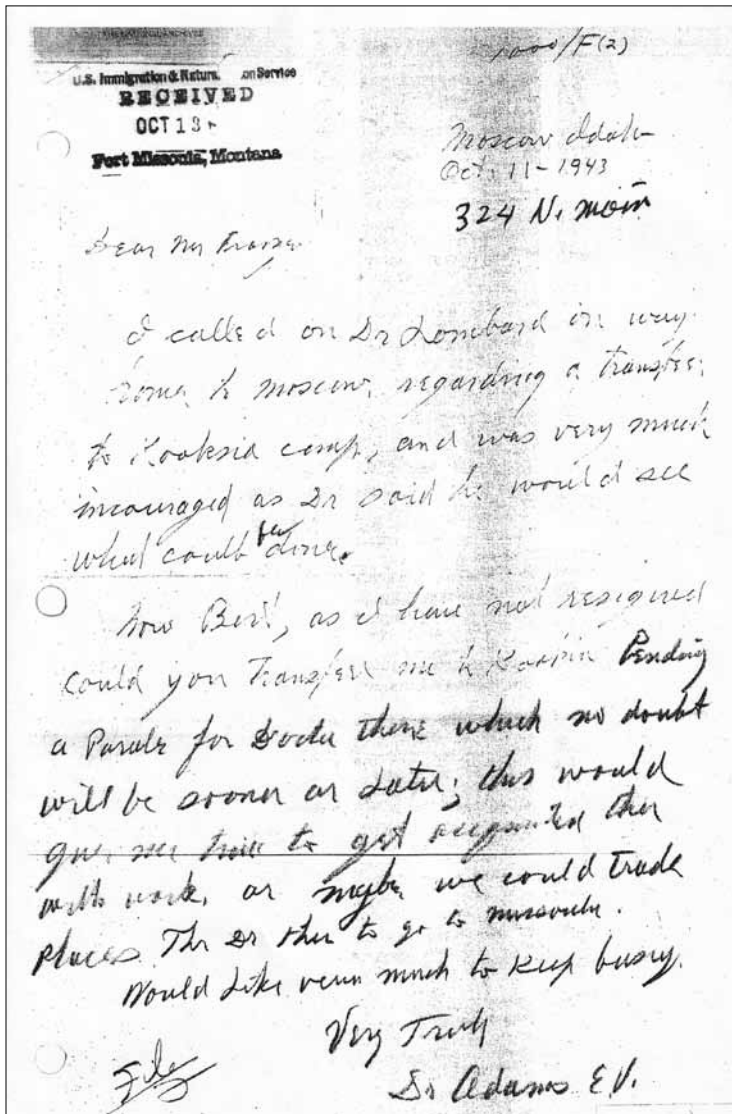 1000/F(2)
U.S. Immigration & Natura on Service
RECEIVED
OCT 13
Fort Missoula, Montana
Moscow Idaho
Oct. 11-1943
324 N. Main
Dear Mr Fraser
I called on Dr Lombard on way
home to Moscow, regarding a transfer
to Kooksia camp, and was very much
incouraged as Dr said he would see
what could be done.
Now Bert, as I have not resigned
could you transfere me to Pending
a Parole for Doctor there which no doubt
will be sooner or Later; this would
give me time to get ther
with work, or maybe we could trade
places The Dr ther to go to Missoula.
Would Like very much to Keep busy.
Very Truly
Dr Adams E.V.
File